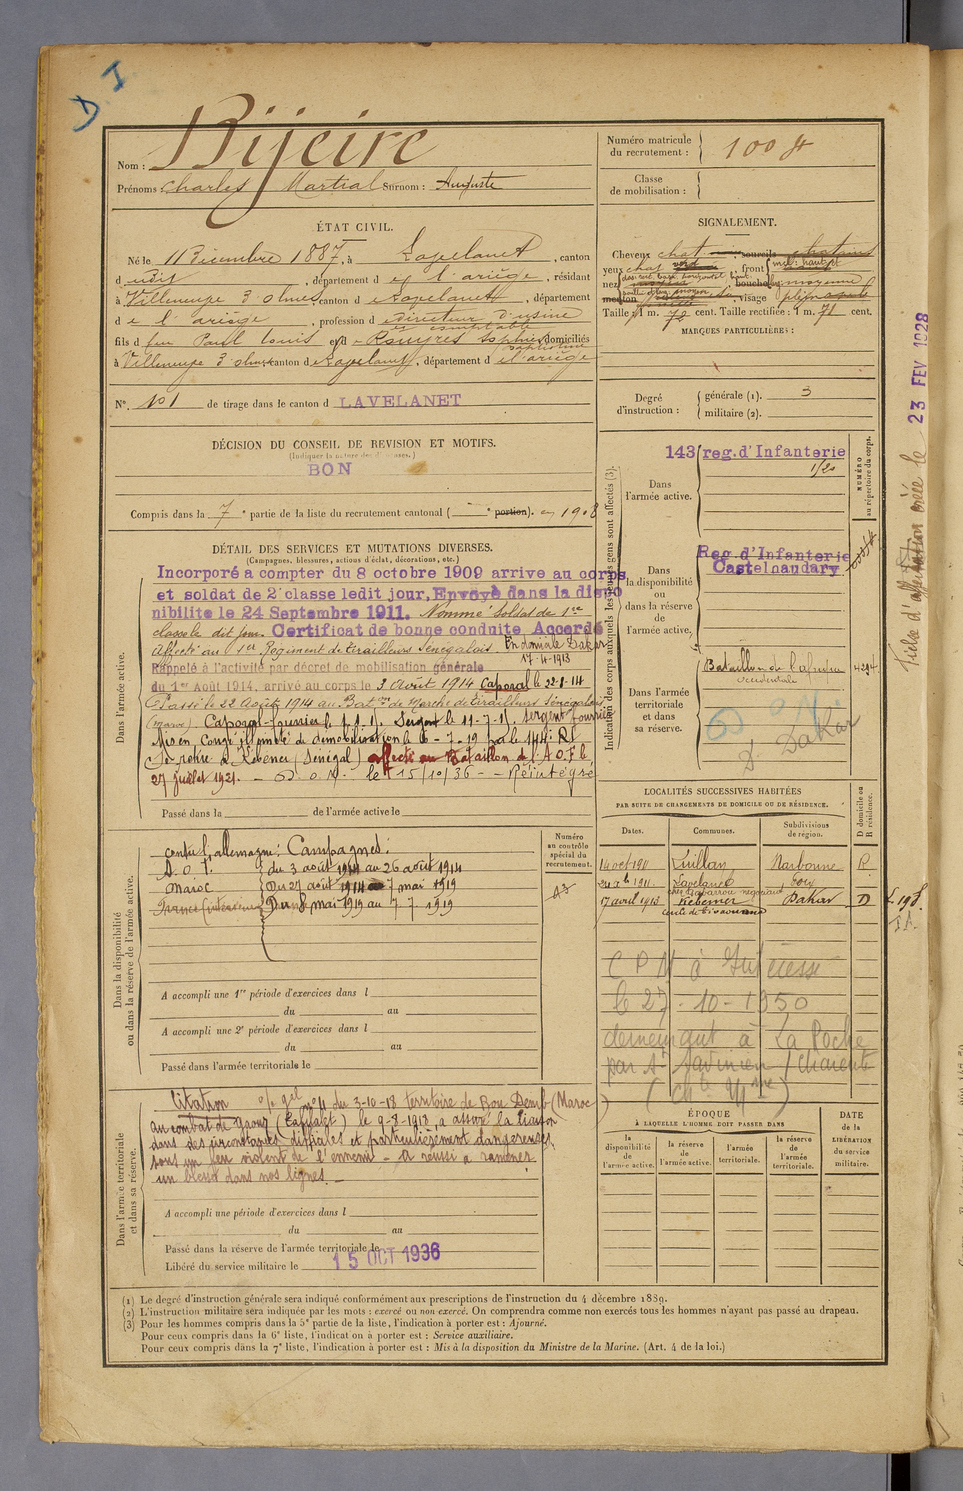 D I
Nom : Bijeire
Prénoms : Charles Martial Surnom : Auguste
Numéro matricule du recrutement : 100
Classe de mobilisation :
ÉTAT CIVIL.
Né le 11 Décembre 1887, à Lavelanet, canton
dudit, département de l'ariège, résidant
à Villeneuve d'olmes, canton de Lavelanet, département
de l'ariège, profession de directeur d'usine
et comptable
fils de feu Paul Louis et de Rouyres Sophie domiciliés
à Villeneuve d'olmes, canton de Lavelanet, département de l'ariège
N° 101 de tirage dans le canton d LAVELANET
SIGNALEMENT.
Cheveux chat sourcils chatains
yeux chat front
nez bouche moyenne
menton visage
Taille : 1 m. 72 cent. Taille rectifiée : 1 m. 71 cent.
MARQUES PARTICULIÈRES :
Degré d'instruction : générale (1). 3
militaire (2).
DÉCISION DU CONSEIL DE REVISION ET MOTIFS.
(Indiquer la nature des dispenses.)
BON
Compris dans la 7e partie de la liste du recrutement cantonal ( e portion). en 1908
DÉTAIL DES SERVICES ET MUTATIONS DIVERSES.
(Campagnes, blessures, actions d'éclat, décorations, etc.)
Dans l'armée active.
Incorporé a compter du 8 octobre 1909 arrive au corps
et soldat de 2e classe ledit jour, Envoyé dans la dispo
nibilite le 24 Septembre 1911. Nommé soldat de 1re
classe le dit jour. Certificat de bonne conduite Accordé
Affecté au 1er Régiment de tirailleurs Sénégalais. En domicile Dakar
17-4-1913
Rappelé à l'activité par décret de mobilisation générale
du 1er Août 1914, arrivé au corps le 3 Août 1914 Caporal le 22-8-14
Passé le 22 Août 1914 au Baton de Marche de tirailleurs Sénégalais
(Maroc). Caporal-fourrier le Sergent le 11-7-1 . Sergent fourrier
Mis en Congé illimité de démobilisation le 6-7-19 par le 144e RI
Se retire à Kébémer (Sénégal) affecté au Bataillon de l'A.O.F. le
27 juillet 1921. — le 15/10/36 — Réintégré
Passé dans la de l'armée active le
Indication des corps auxquels les jeunes gens sont affectés (3).
Dans l'armée active.
143 reg. d'Infanterie
NUMÉRO au répertoire du corps.
Dans la disponibilité ou dans la réserve de l'armée active.
Reg. d'Infanterie
Castelnaudary
Dans l'armée territoriale et dans sa réserve.
Bataillon de l'afrique
occidentale
D. Dakar
Fiche d'affectation créée le 23 FEV 1928
LOCALITÉS SUCCESSIVES HABITÉES
PAR SUITE DE CHANGEMENTS DE DOMICILE OU DE RÉSIDENCE.
Dates. Communes. Subdivisions de région. D domicile ou R résidence.
14 oct 1911 Quillan Narbonne R
Lavelanet Foix
chez Gabarrou négociant
17 avril 1913 Kébémer Dakar D
cercle de
C P N à
le 27-10-1950
demeurant à La Roche
par St Savinien / Charente
(Chte Mme)
Dans la disponibilité ou dans la réserve de l'armée active.
contre l'allemagne : Campagnes :
A. O. F. du 3 août 1914 au 26 août 1914
Maroc Du 27 août 1914 au 7 mai 1919
France (intérieur) Du 8 mai 1919 au 7 7 1919
Numéro au contrôle spécial du recrutement.
A accompli une 1re période d'exercices dans l
du au
A accompli une 2e période d'exercices dans l
du au
Passé dans l'armée territoriale le
Dans l'armée territoriale et dans sa réserve.
Citation o/ gal du 3-10-18 territoire de Bou Denib (Maroc)
Au combat de Gaouz (Tafilalet) le 9-8-1918, a assuré la liaison
dans des circonstances difficiles et particulièrement dangereuses,
sous un feu violent de l'ennemi - A réussi à ramener
un blessé dans nos lignes. -
A accompli une période d'exercices dans l
du au
Passé dans la réserve de l'armée territoriale le
Libéré du service militaire le 15 OCT 1936
ÉPOQUE
À LAQUELLE L'HOMME DOIT PASSER DANS
la disponibilité de l'armée active.
la réserve de l'armée active.
l'armée territoriale.
la réserve de l'armée territoriale.
DATE de la LIBÉRATION du service militaire.
(1) Le degré d'instruction générale sera indiqué conformément aux prescriptions de l'instruction du 4 décembre 1889.
(2) L'instruction militaire sera indiquée par les mots : exercé ou non exercé. On comprendra comme non exercés tous les hommes n'ayant pas passé au drapeau.
(3) Pour les hommes compris dans la 5e partie de la liste, l'indication à porter est : Ajourné.
Pour ceux compris dans la 6e liste, l'indication à porter est : Service auxiliaire.
Pour ceux compris dans la 7e liste, l'indication à porter est : Mis à la disposition du Ministre de la Marine. (Art. 4 de la loi.)